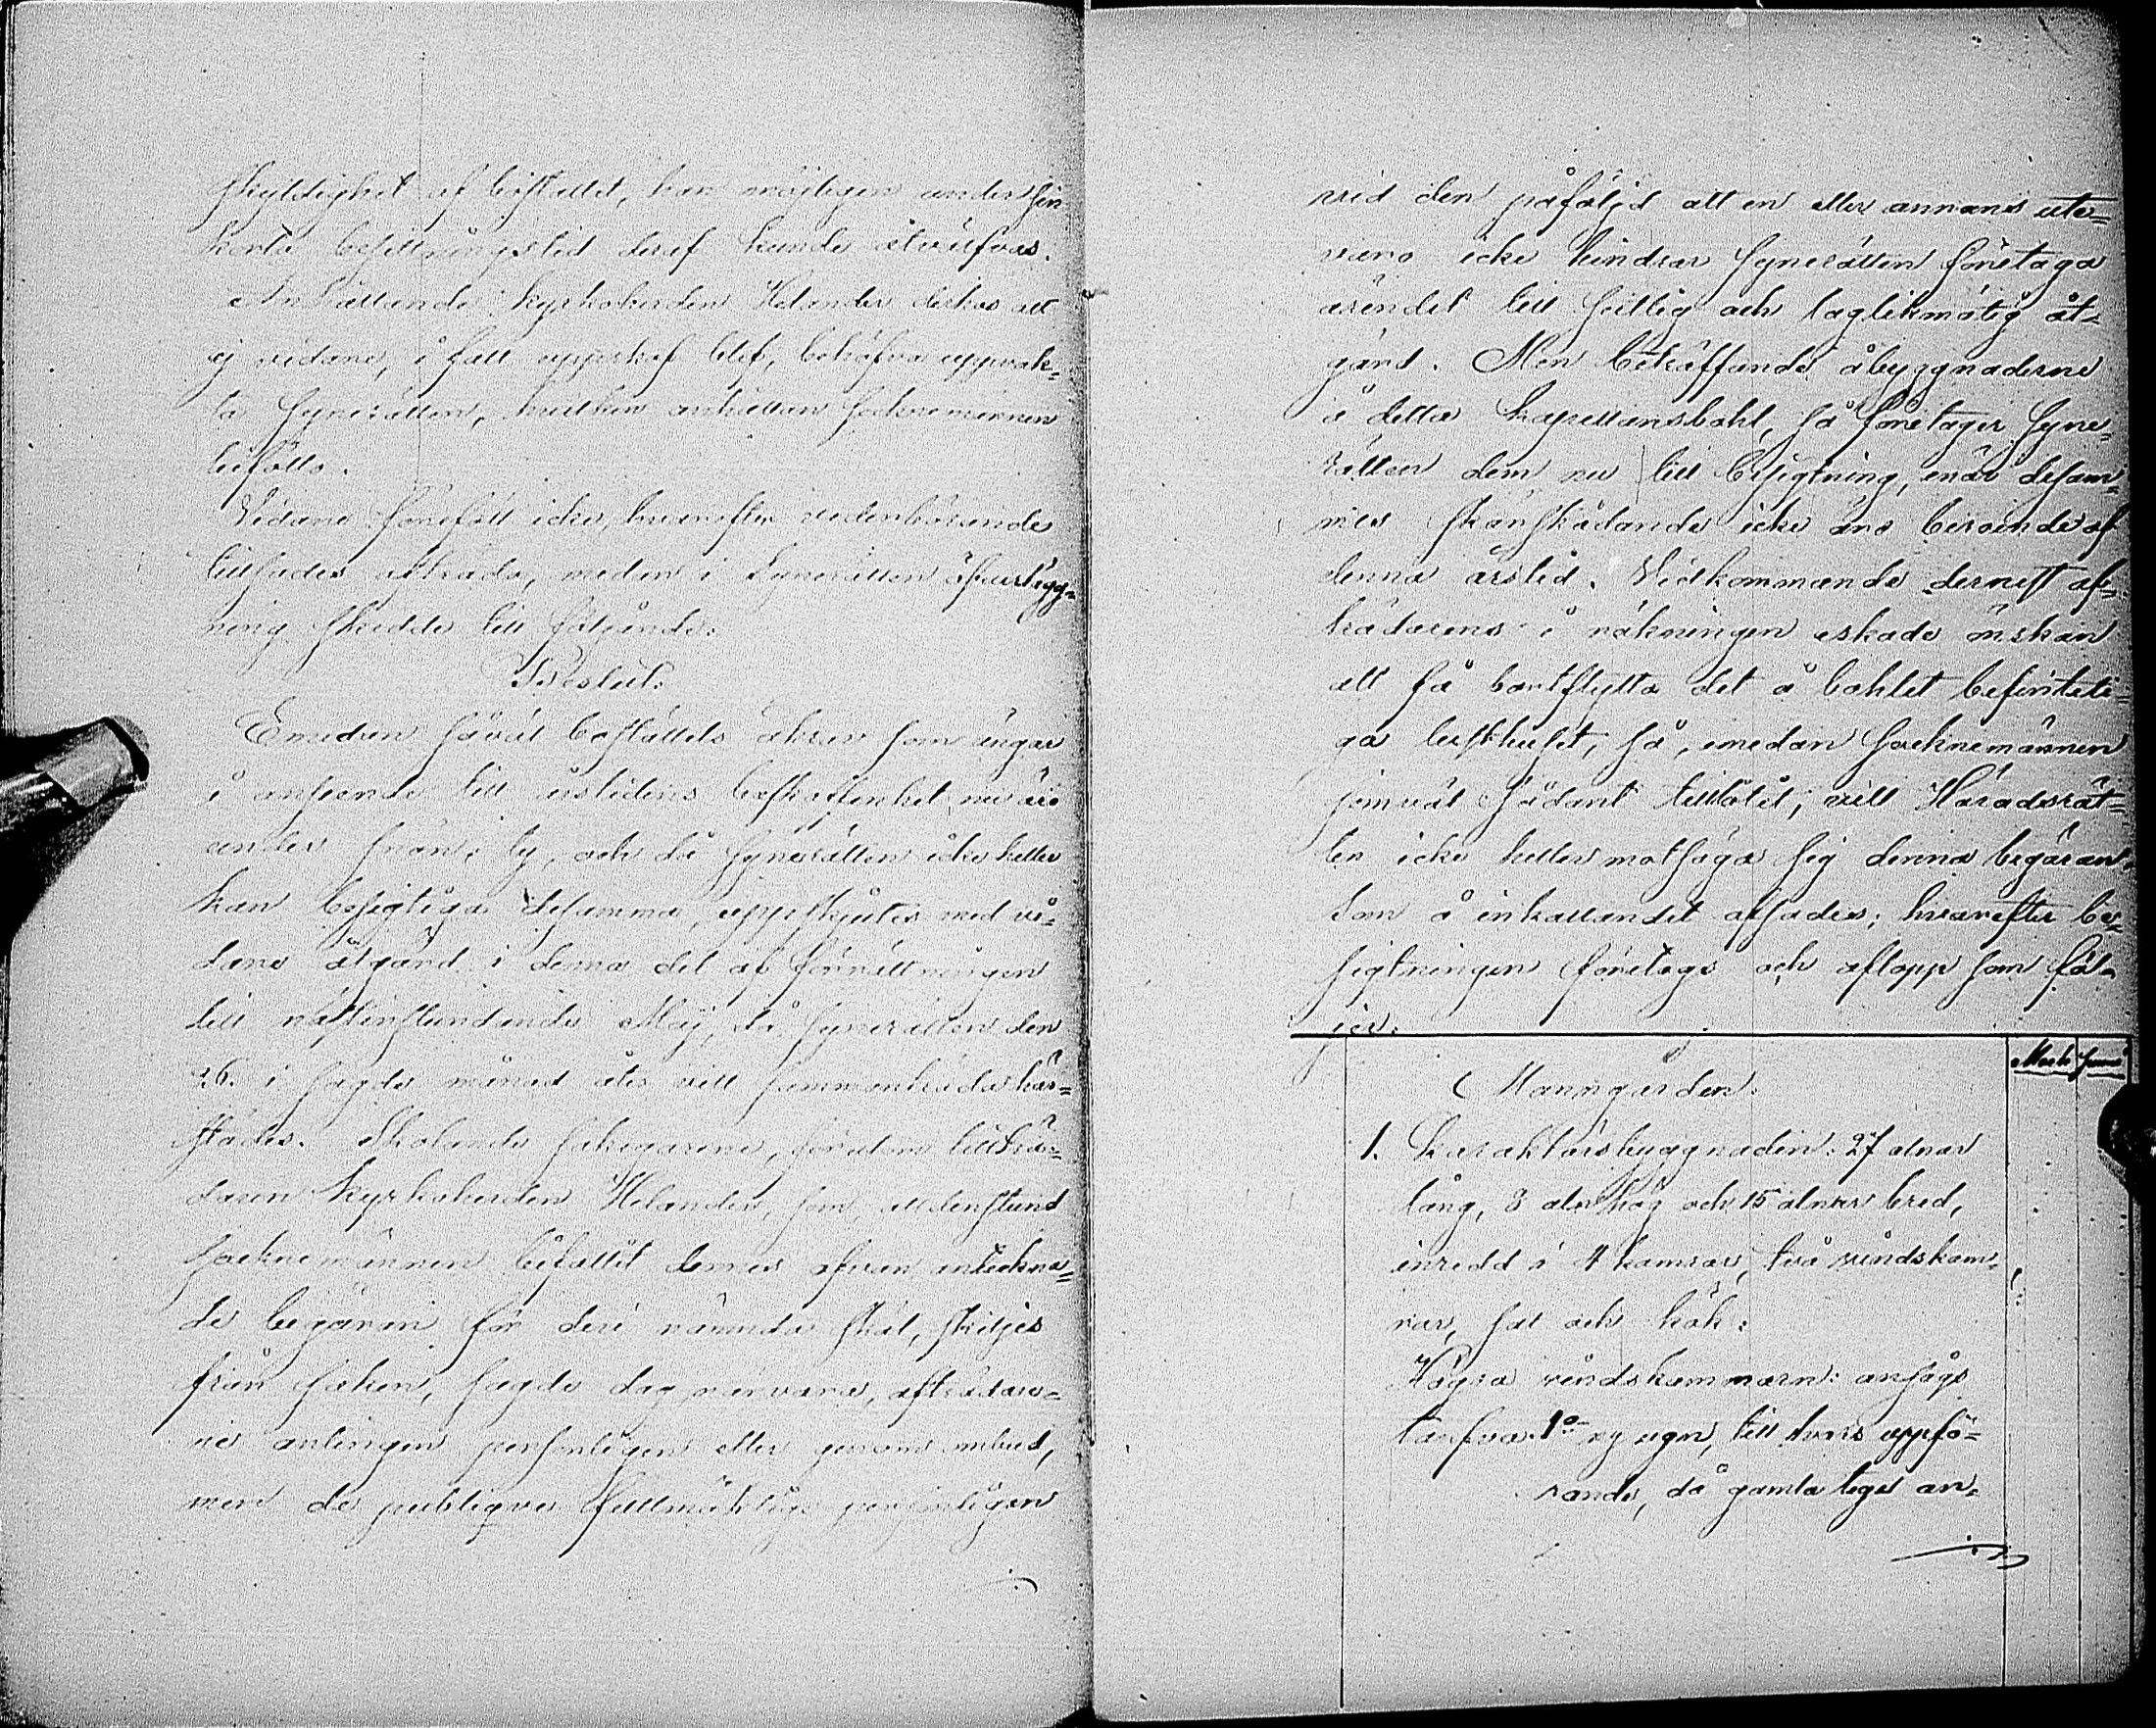 skyldighet af bostället, han möjligen under sin
korta besittningstid deraf kunde åtnjutas.
Anhållande kyrkoherden Helander derhos att
ej vidare, i fall uppskof blef, behöfva uppvak-
ta Synerätten, hvilken anhållan socknemännen
biföllo.
Vidare föreföll icke, hvarefter vederbörande
tillsades afträda, medan i Synerätten öfverlägg-
ning skedde till följande:
Beslut:
Emedan såväl boställets åkrar som ängar
i anseende till årstidens beskaffenhet nu äro
under snön; ty, och då Synerätten icke heller
kan besigtiga desamma, uppskjutes med vi-
dare åtgärd i denna del af förrättningen
till nästinstundande Maj, då Synerätten den
26. i sagde månad åter vill sammanträda här-
städes. Skolande sakegarene, förutom tillträ-
daren Kyrkoherden Helander, som, alldenstund
socknemännen bifallit dennes ofvan anteckna-
de begäran för deri nämnda skäl, skiljes
från saken, sagde dag närvara, afträdare-
ne antingen personligen eller genom ombud,
men de publique fullmäktige personligen
vid den påföljd att en eller annans ute-
varo icke hindrar Synerätten företaga
ärendet till sutlig och laglikmätig åt-
gärd. Men beträffande åbyggnaderne
å detta kapellansbohl, så företager Syne-
rätten dem nu till besigtning, enär desam-
mes skärskådande icke äro beroende af
denna årstid. Vidkommande dernäst af-
trädarens i räkningen eskade önskan
att få bortflytta det å bohlet befintli-
ga lusthuset, så, emedan socknemännen
jemväl sådant tillåtit, vill Häradsrät-
ten icke heller motsäga sig denna begäran.
Som å inkallandet afsades; hvarefter be-
sigtningen företogs och aflopp som föl-
jer:
Mark penni
Manngården:
1. Karaktärsbyggnaden: 27 alnar
lång, 8 aln hög och 15 alnar bred,
inredd i 4 kamrar, två vindskam-
rar, sal och kök:
Högra vindskammarn: ansågs
tarfva 1o ny ugn, till hvars uppfö-
rande, då gamla teget an-